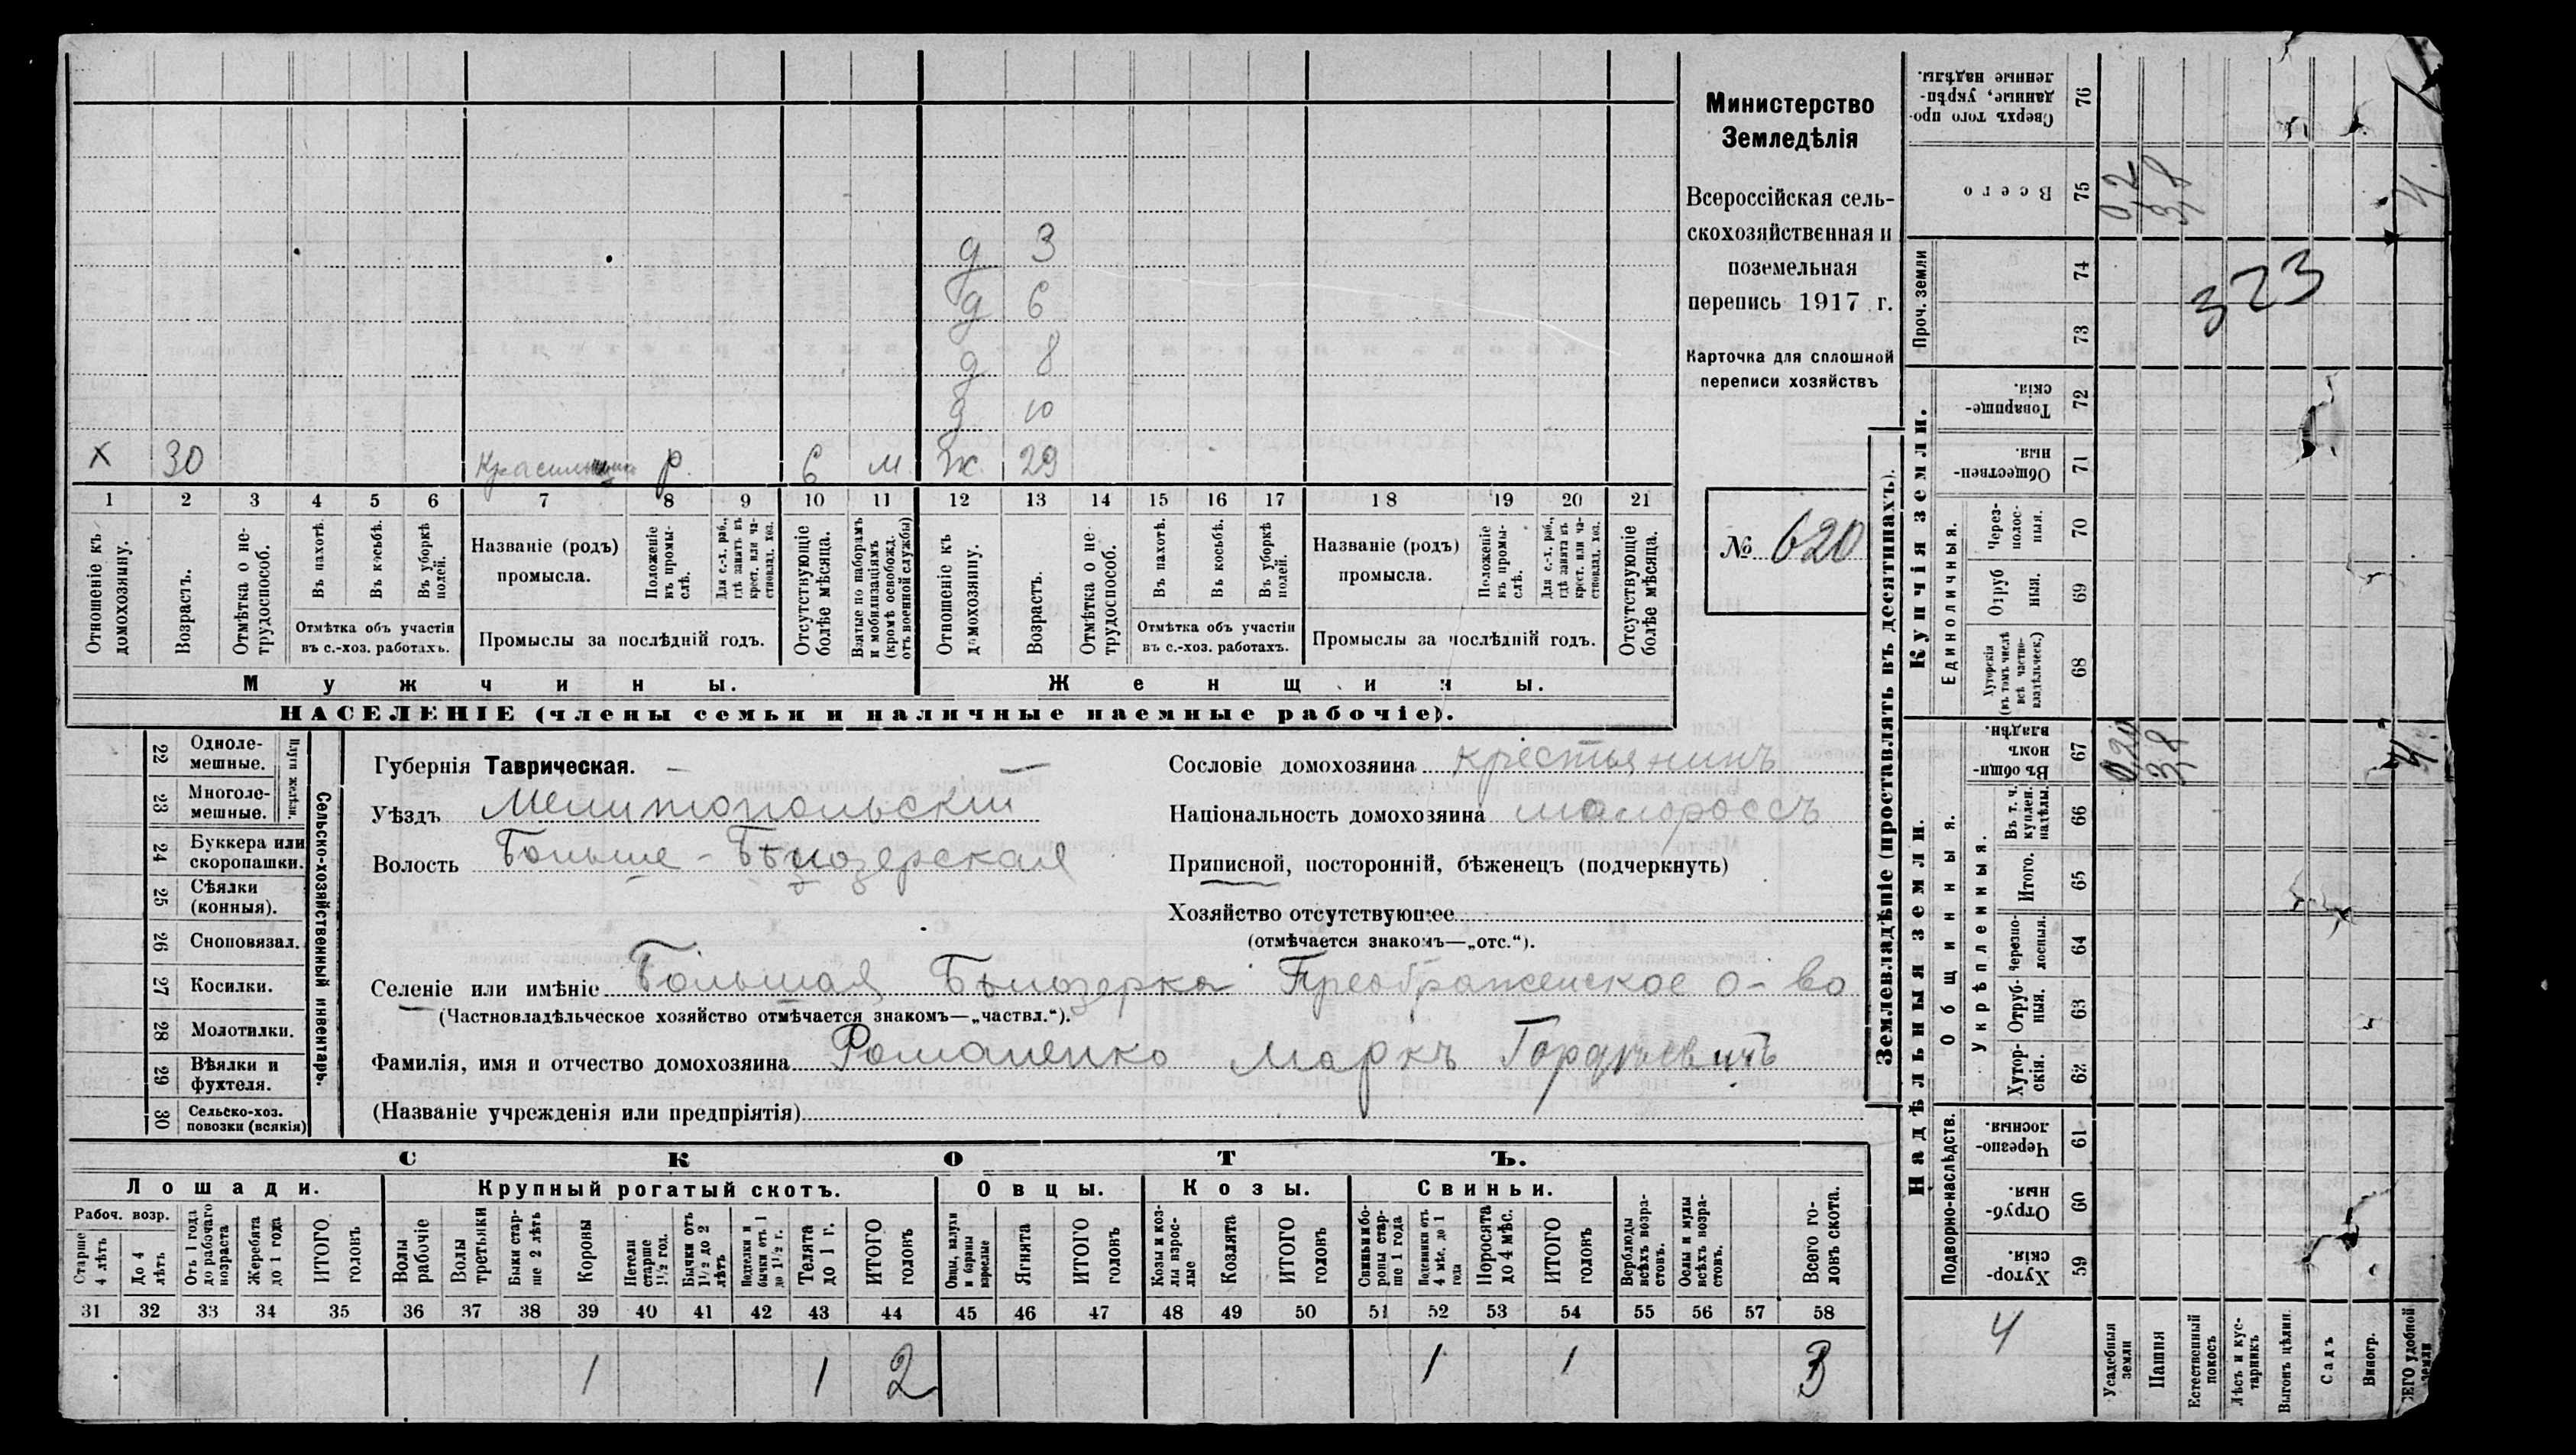 Министерство
Земледѣлія
Всероссійская сель-
скохозяйственная и
поземельная
перепись 1917 г.
Карточка для сплошной
переписи хозяйствъ
№ 620
д 3
д 6
д 8
д 10
х 30 р. 6 м ж 29
1 2 3 4 5 6 7 8 9 10 11 12 13 14 15 16 17 18 19 20 21
Отношеніе къ домохозяину.
Возрастъ.
Отмѣтка о не-трудоспособ.
Въ пахотѣ.
Въ косьбѣ.
Въ уборкѣ полей.
Отмѣтка объ участіи въ с.-хоз. работахъ.
Названіе (родъ) промысла.
Положеніе къ промы-слѣ.
Для с.-х. раб., гдѣ занятъ въ крест. или ча-стновлад. хоз.
Промыслы за послѣдній годъ.
Отсутствующіе болѣе мѣсяца.
Взятые по наборамъ и мобилизаціямъ (кромѣ освобожд. отъ военной службы)
Отношеніе къ домохозяину.
Возрастъ.
Отмѣтка о не-трудоспособ.
Въ пахотѣ.
Въ косьбѣ.
Въ уборкѣ полей.
Отмѣтка объ участіи въ с.-хоз. работахъ.
Названіе (родъ) промысла.
Положеніе къ промы-слѣ.
Для с.-х. раб., гдѣ занята въ крест. или ча-стновлад. хоз.
Промыслы за послѣдній годъ.
Отсутствующіе болѣе мѣсяца.
Мужчины. Женщины.
НАСЕЛЕНІЕ (члены семьи и наличные наемные рабочіе).
Сельско-хозяйственный инвентарь.
Плуги желѣзн.
22 Одноле-мешные.
23 Многоле-мешные.
24 Буккера или скоропашки.
25 Сѣялки (конныя).
26 Сноповязал.
27 Косилки.
28 Молотилки.
29 Вѣялки и фухтеля.
30 Сельско-хоз. повозки (всякія)
Губернія Таврическая.
Уѣздъ Мелитопольскій
Волость Больше-Бѣлозерская
Сословіе домохозяина крестьянинъ
Національность домохозяина малороссъ
Приписной, посторонній, бѣженецъ (подчеркнуть)
Хозяйство отсутствующее
(отмѣчается знакомъ—„отс.“).
Селеніе или имѣніе Большая Бѣлозерка Преображенское о-во
(Частновладѣльческое хозяйство отмѣчается знакомъ—„частвл.“).
Фамилія, имя и отчество домохозяина Романенко Маркъ Гордѣевичъ
(Названіе учрежденія или предпріятія)
СКОТЪ.
Лошади. Крупный рогатый скотъ. Овцы. Козы. Свиньи.
Рабоч. возр.
Старше 4 лѣтъ
До 4 лѣтъ
Отъ 1 года до рабочаго возраста
Жеребята до 1 года
ИТОГО головъ
Волы рабочіе
Волы третьяки
Быки стар-ше 2 лѣтъ
Коровы
Нетели старше 1½ год.
Бычки отъ 1½ до 2 лѣтъ
Подтелки и бычки отъ 1 до 1½ г.
Телята до 1 г.
ИТОГО головъ
Овцы, валухи и бараны взрослые
Ягнята
ИТОГО головъ
Козы и коз-лы взрос-лые
Козлята
ИТОГО головъ
Свиньи и бо-роны стар-ше 1 года
Подсвинки отъ 4 мѣс. до 1 года
Поросята до 4 мѣс.
ИТОГО головъ
Верблюды всѣхъ возра-стовъ.
Ослы и мулы всѣхъ возра-стовъ.
Всего го-ловъ скота.
31 32 33 34 35 36 37 38 39 40 41 42 43 44 45 46 47 48 49 50 51 52 53 54 55 56 57 58
1 1 2 1 1 3
Землевладѣніе (проставлять въ десятинахъ).
Надѣльныя земли. Купчія земли.
Проч. земли
Подворно-наслѣдств.
Общинныя.
Укрѣпленныя.
Единоличныя.
76 Сверхъ того про-данные, укрѣп-ленные надѣлы.
75 Всего 0,2 3,8 4.
74
73
323
72 Товарище-скія.
71 Обществен-ныя.
70 Через-полос-ныя.
69 Отруб-ныя.
68 Хуторскія (въ томъ числѣ всѣ частно-владѣльческ.)
67 Въ общин-номъ владѣн. 0,20 3,8 4.
66 Въ т. ч. куплен. надѣлы.
65 Итого.
64 Черезпо-лосныя.
63 Отруб-ныя.
62 Хутор-скія.
61 Черезпо-лосныя.
60 Отруб-ныя.
59 Хутор-скія.
4
Усадебныя земли
Пашня
Естественный покосъ
Лѣсъ и кус-тарникъ
Выгонъ цѣлин.
Садъ
Виногр.
ВСЕГО удобной земли